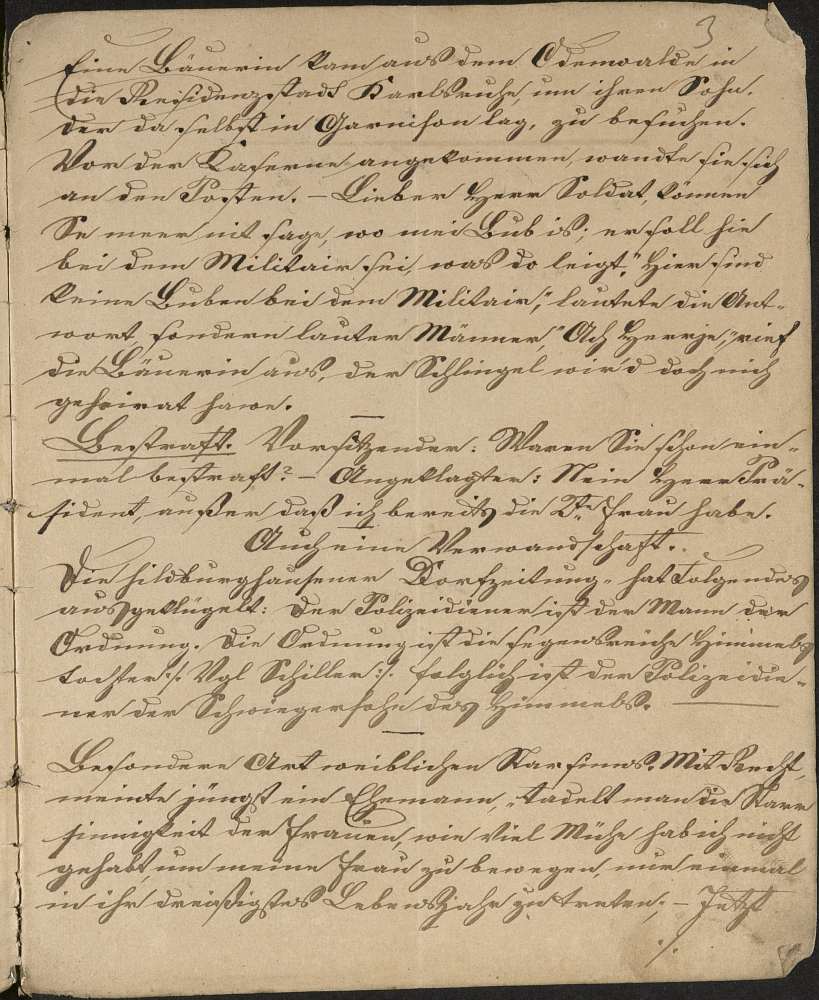 3
Eine Bäuerin kam aus dem Odenwalde in
die Residenzstadt Karlsruhe, um ihren Sohn,
der da selbst in Garnison lag, zu besuchen.
Vor der Kaserne angekommen, wandte sie sich
an den Posten. – Lieber Herr Soldat, können
Se meer nit sage, wo mei Bub is; er soll hie
bei dem Militair sei, was do leigt." Hier sind
keine Buben bei dem Militair", lautete die Ant-
wort, sondern lauter Männer". Ach Herrje," rief
die Bäuerin aus, der Schlingel wird doch nich
geheirat hawe.
Bestraft. Vorsitzender: Waren Sie schon ein-
mal bestraft? – Angeklagter: Nein Herr Prä-
sident, außer daß ich bereits die 2te Frau habe.
Auch eine Verwandschaft.
Die hildburghausener Dorfzeitung" hat Folgendes
ausgeklügelt: Der Polizeidiener ist der Mann der
Ordnung. Die Ordnung ist die segensreiche Himmels
tochter /: Vgl Schiller :/. folglich ist der Polizeidie-
ner der Schwiegersohn des Himmels.
Besondere Art weiblichen Starsinns. Mit Recht,
meinte jüngst ein Ehemann, „tadelt man die Starr
sinnigkeit der Frauen, wie viel Mühe hab ich nicht
gehabt, um meine Frau zu bewegen, nur einmal
in ihr dreißigstes Lebensjahr zu treten; – Jetzt